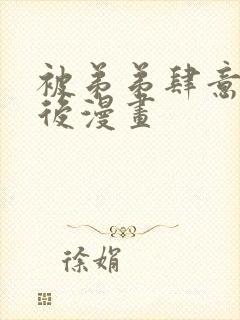 被弟弟肆意
後漫畫
徐娟